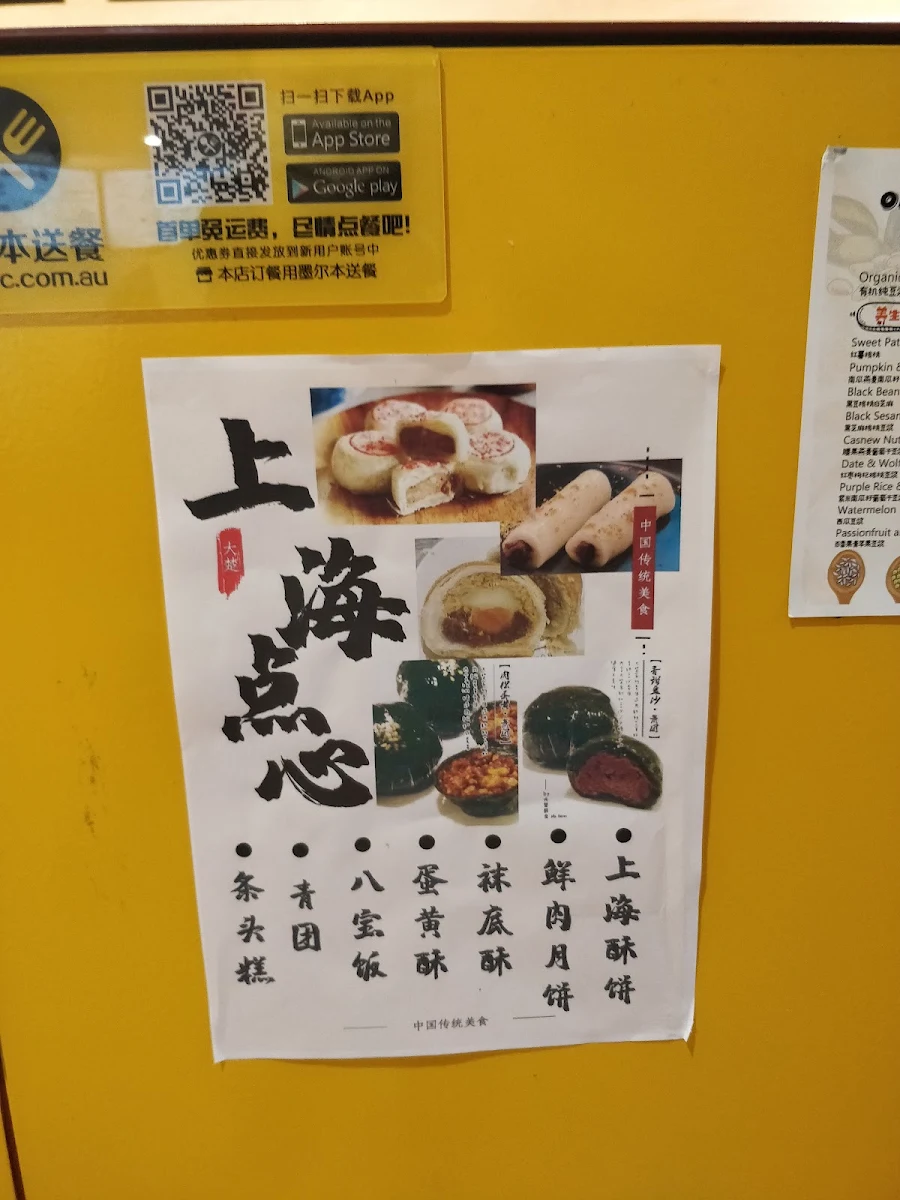 扫一扫下载App
Available on the
App Store
ANDROID APP ON
Google play
首单免运费，尽情点餐吧!
优惠券直接发放到新用户账号中
本店订餐用墨尔本送餐
本送餐
c.com.au
上海点心
大楚
中国传统美食
上海酥饼
鲜肉月饼
袜底酥
蛋黄酥
八宝饭
青团
条头糕
中国传统美食
Organi
有机纯豆
养生
Sweet Pat
Pumpkin &
Black Bean
Black Sesar
Casnew Nut
Date & Wolf
Purple Rice &
Watermelon
西瓜豆浆
Passionfruit a